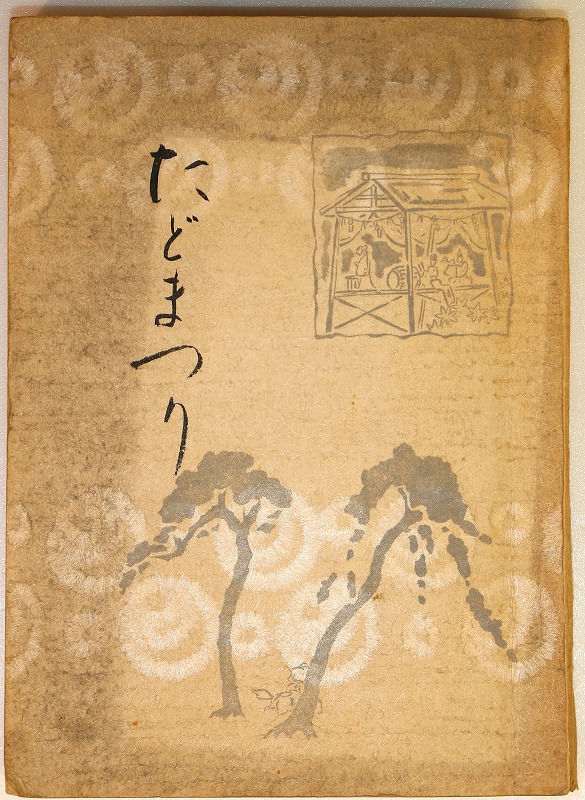 たどまつり